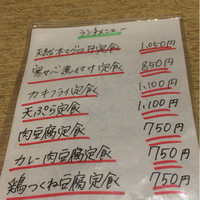 ランチメニュー
天然本マグロ丼定食 1,050円
定食 850円
カキフライ定食 1,100円
天ぷら定食 1,100円
肉豆腐定食 750円
カレー肉豆腐定食 750円
鶏つくね豆腐定食 750円